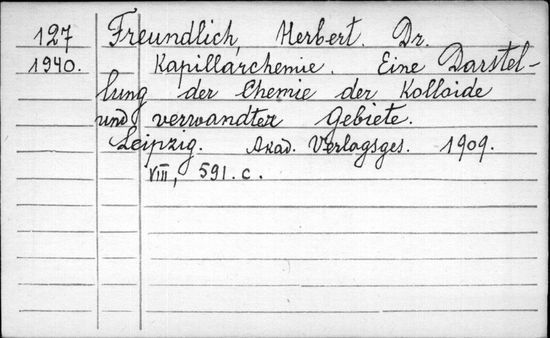 127 Freundlich, Herbert. Dr.
1940. Kapillarchemie. Eine Darstel-
lung der Chemie der Kolloide
und verwandter Gebiete.
Leipzig. Akad. Verlagsges. 1909.
VIII, 591. c.